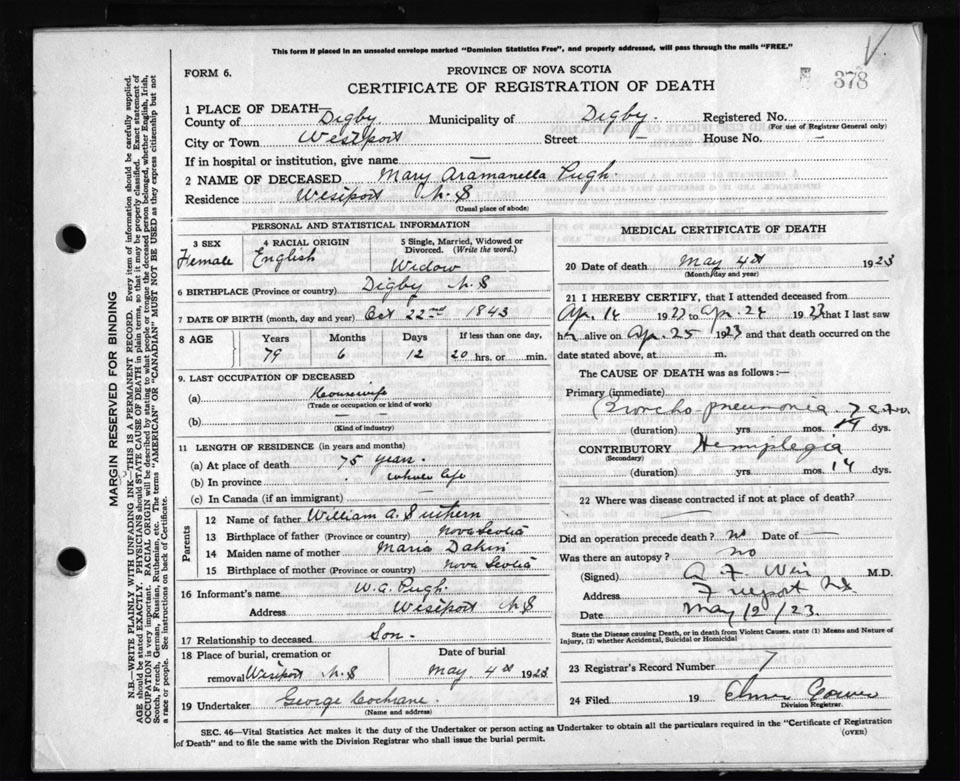 This form if placed in an unsealed envelope marked "Dominion Statistics Free", and properly addressed, will pass through the mails "FREE."
V.
FORM 6.
PROVINCE OF NOVA SCOTIA
378
CERTIFICATE OF REGISTRATION OF DEATH
1 PLACE OF DEATH—
County of Digby Municipality of Digby. Registered No.
(For use of Registrar General only)
City or Town Westport Street — House No. —
If in hospital or institution, give name —
2 NAME OF DECEASED Mary Aramanella Pugh.
Residence Westport N.S
(Usual place of abode)
PERSONAL AND STATISTICAL INFORMATION
3 SEX 4 RACIAL ORIGIN 5 Single, Married, Widowed or Divorced. (Write the word.)
Female English Widow
6 BIRTHPLACE (Province or country) Digby N.S
7 DATE OF BIRTH (month, day and year) Oct 22nd 1843
8 AGE Years Months Days If less than one day,
79 6 12 20 hrs. or min.
9. LAST OCCUPATION OF DECEASED
(a) Housewife
(Trade or occupation or kind of work)
(b)
(Kind of industry)
11 LENGTH OF RESIDENCE (in years and months)
(a) At place of death 75 years.
(b) In province whole life
(c) In Canada (if an immigrant)
Parents
12 Name of father William A. Suthern
13 Birthplace of father (Province or country) Nova Scotia
14 Maiden name of mother Maria Dakin
15 Birthplace of mother (Province or country) Nova Scotia
16 Informant's name W. A. Pugh
Address Westport N.S
17 Relationship to deceased Son.
18 Place of burial, cremation or removal Westport N.S Date of burial May 4th 1923
19 Undertaker George Cochrane.
(Name and address)
MEDICAL CERTIFICATE OF DEATH
20 Date of death May 4th 1923
(Month, day and year)
21 I HEREBY CERTIFY, that I attended deceased from
Ap. 14 1923 to Ap. 24 1923 that I last saw
her alive on Ap. 25 1923 and that death occurred on the
date stated above, at m.
The CAUSE OF DEATH was as follows:—
Primary (immediate)
Broncho-pneumonia
(duration) yrs. mos. dys.
CONTRIBUTORY Hemiplegia
(Secondary)
(duration) yrs. mos. 14 dys.
22 Where was disease contracted if not at place of death?
—
Did an operation precede death? no Date of —
Was there an autopsy? no
(Signed) A. F. Weir M.D.
Address Freeport N.S
Date May /23
State the Disease causing Death, or in death from Violent Causes, state (1) Means and Nature of
Injury, (2) whether Accidental, Suicidal or Homicidal
23 Registrar's Record Number 7
24 Filed 19 Elmer
Division Registrar.
SEC. 46—Vital Statistics Act makes it the duty of the Undertaker or person acting as Undertaker to obtain all the particulars required in the "Certificate of Registration
of Death" and to file the same with the Division Registrar who shall issue the burial permit.
(OVER)
MARGIN RESERVED FOR BINDING
N.B.—WRITE PLAINLY WITH UNFADING INK—THIS IS A PERMANENT RECORD. Every item of information should be carefully supplied.
AGE should be stated EXACTLY. PHYSICIANS should STATE CAUSE OF DEATH in plain terms, so that it may be properly classified. Exact statement of
OCCUPATION is very important. RACIAL ORIGIN will be described by stating to what people or tongue the deceased person belonged, whether English, Irish,
Scotch, French, German, Russian, Ruthenian, etc. The terms "AMERICAN" OR "CANADIAN" MUST NOT BE USED as they express citizenship but not
a race or people. See instructions on back of Certificate.